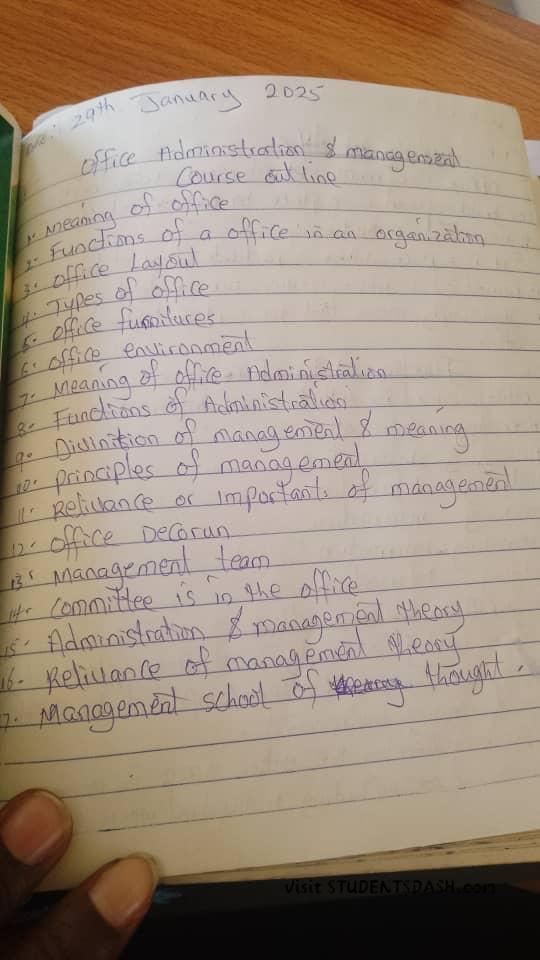 29th January 2025
Office Administration & management
Course outline
1. Meaning of office
2. Functions of a office in an organization
3. Office Layout
4. Types of office
5. Office furnitures
6. Office environment
7. Meaning of office Administration
8. Functions of Administration
9. Divinition of management & meaning
10. Principles of management
11. Relivance or important. of management
12. Office Decorun
13. Management team
14. Committee is in the office
15. Administration & management theory
16. Relivance of management theory
7. Management school of thought.
Visit STUDENTSDASH.com